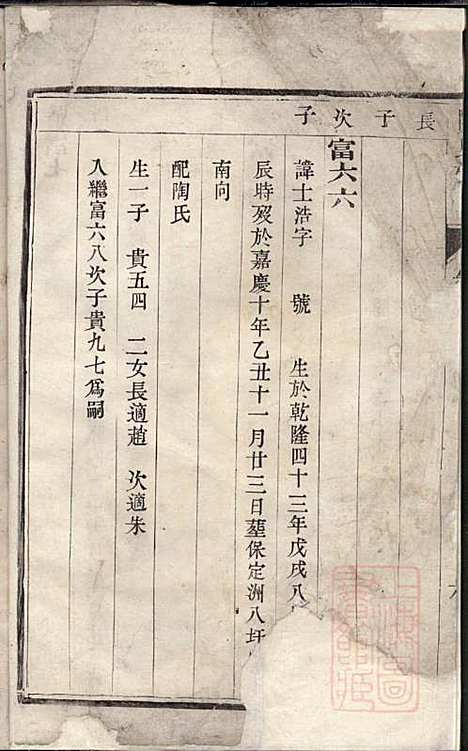 長子次子
富六六
諱士浩字 號 生於乾隆四十三年戊戌八
辰時歿於嘉慶十年乙丑十一月廿三日塟保定洲八圩
南向
配陶氏
生一子 貴五四 二女長適趙 次適朱
入繼富六八次子貴九七爲嗣